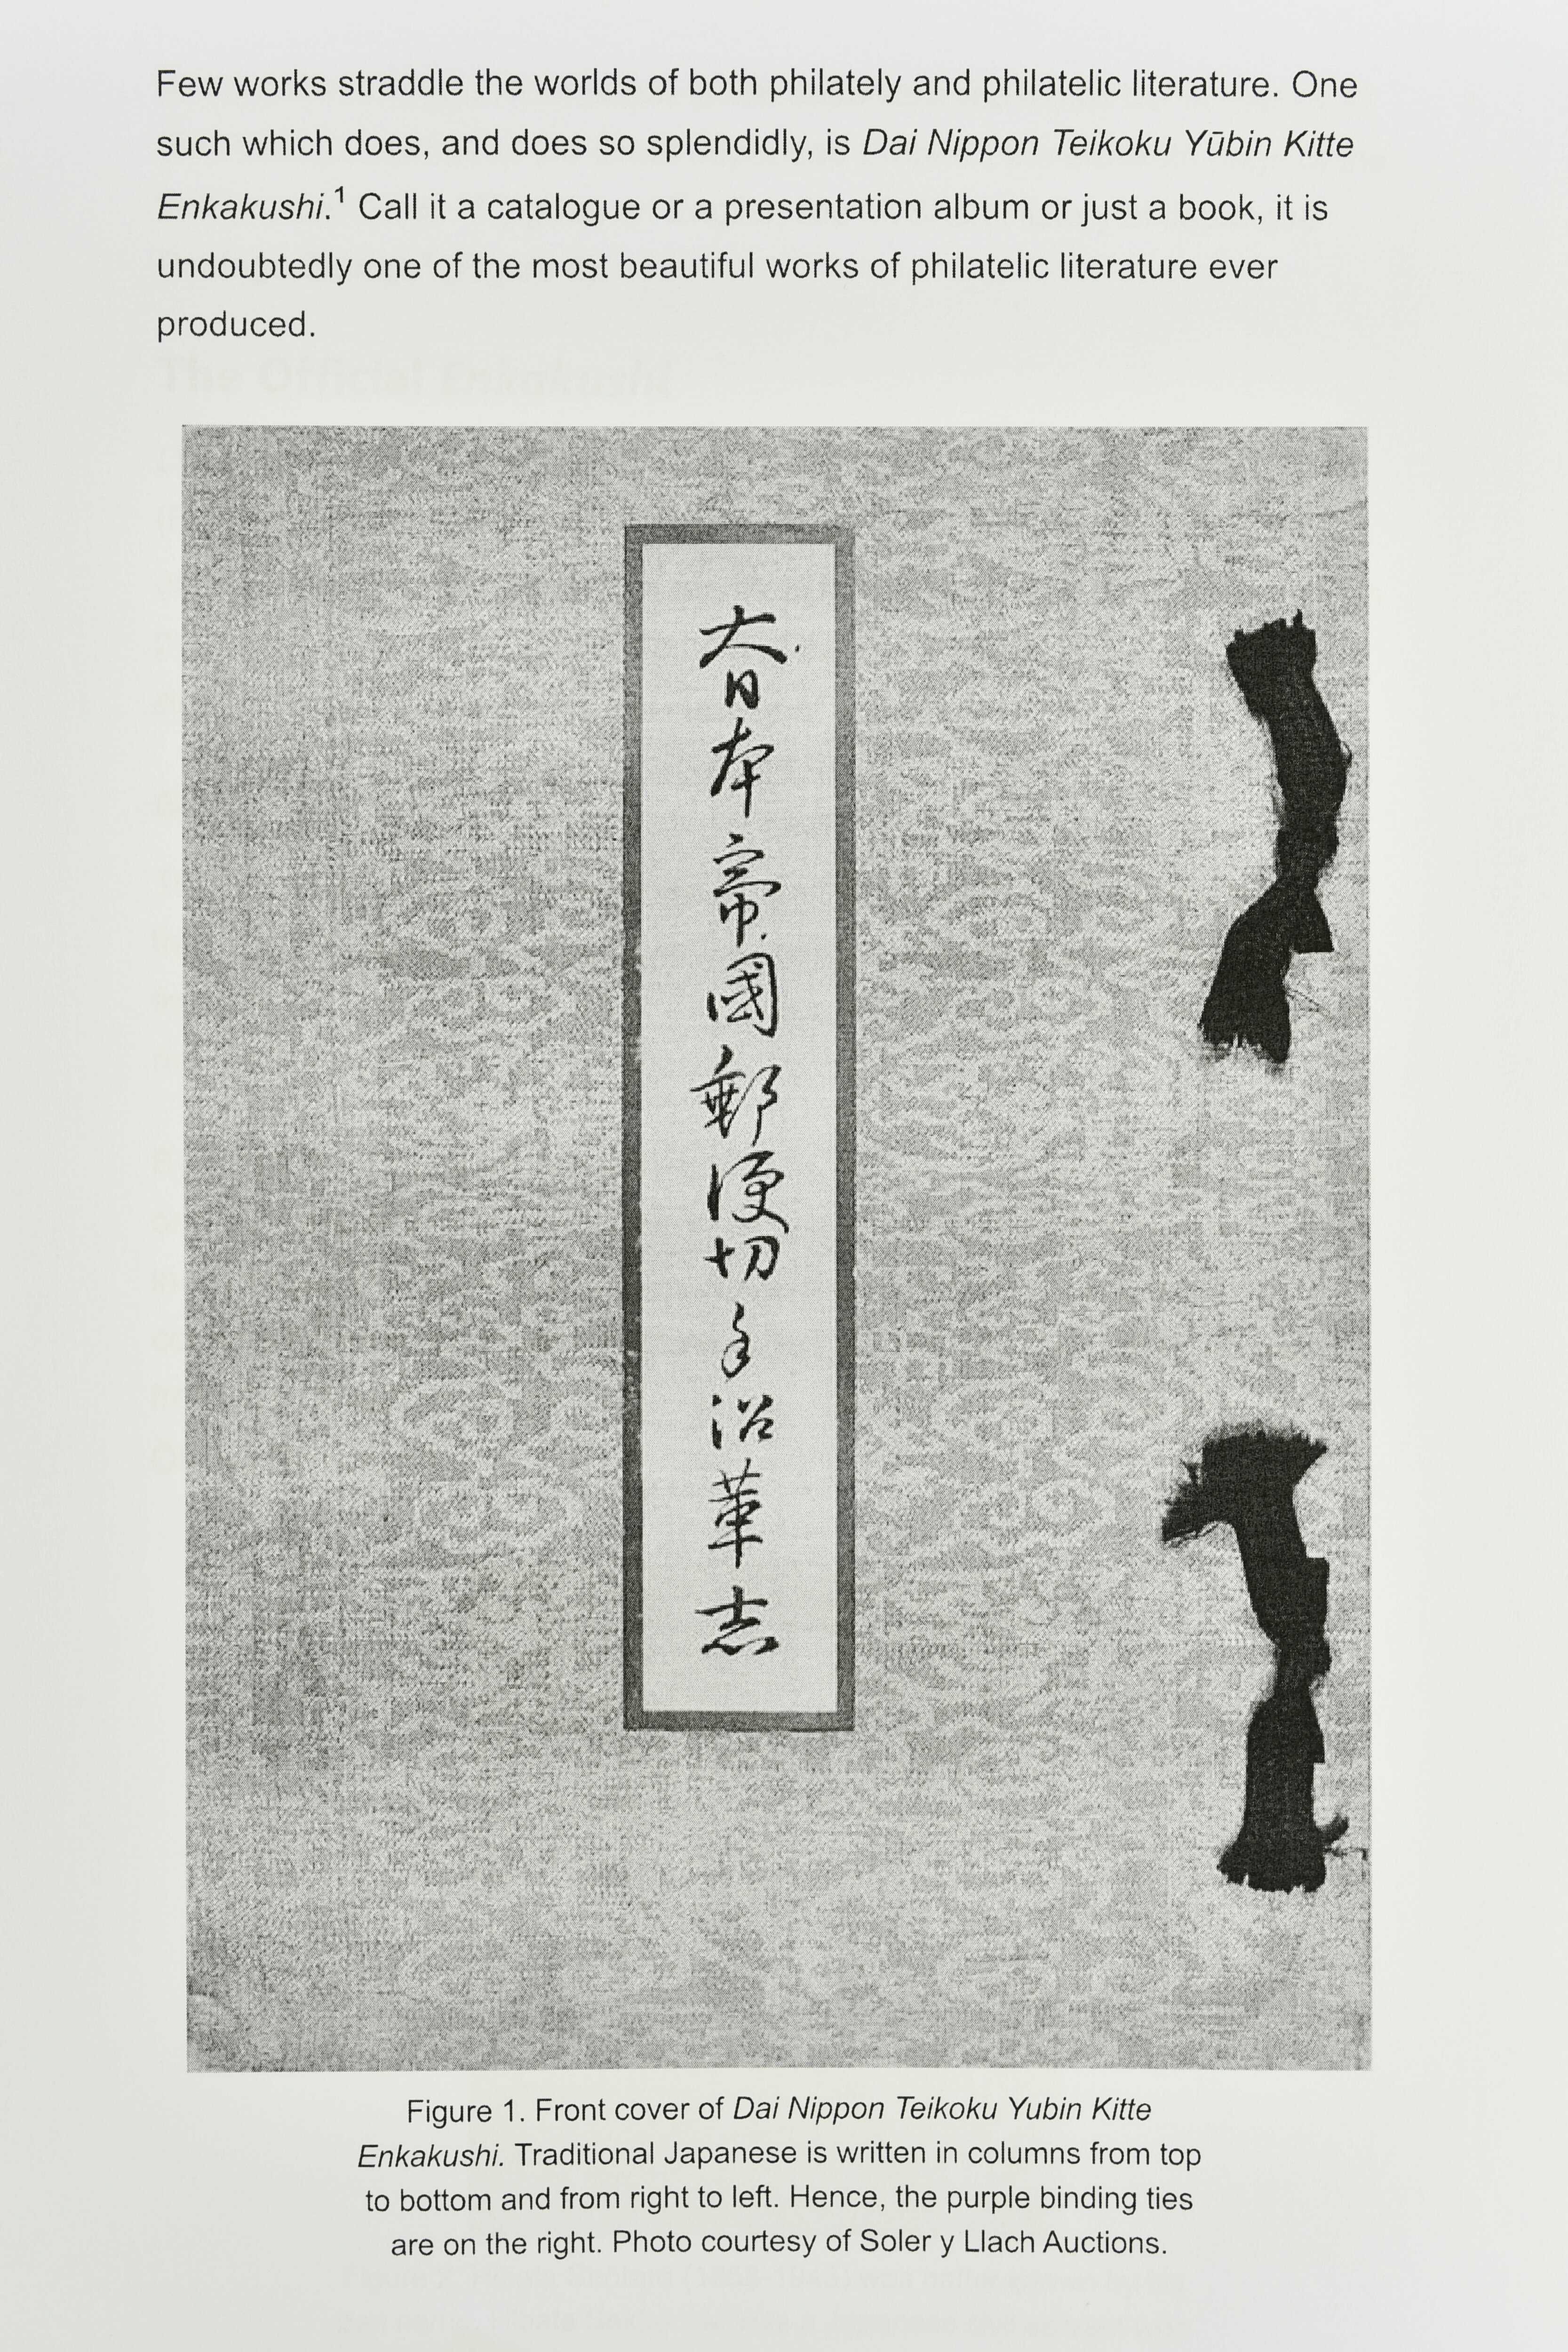 Few works straddle the worlds of both philately and philatelic literature. One
such which does, and does so splendidly, is Dai Nippon Teikoku Yūbin Kitte
Enkakushi.¹ Call it a catalogue or a presentation album or just a book, it is
undoubtedly one of the most beautiful works of philatelic literature ever
produced.
The Official Enkakushi
大日本帝國郵便切手沿革志
Figure 1. Front cover of Dai Nippon Teikoku Yubin Kitte
Enkakushi. Traditional Japanese is written in columns from top
to bottom and from right to left. Hence, the purple binding ties
are on the right. Photo courtesy of Soler y Llach Auctions.